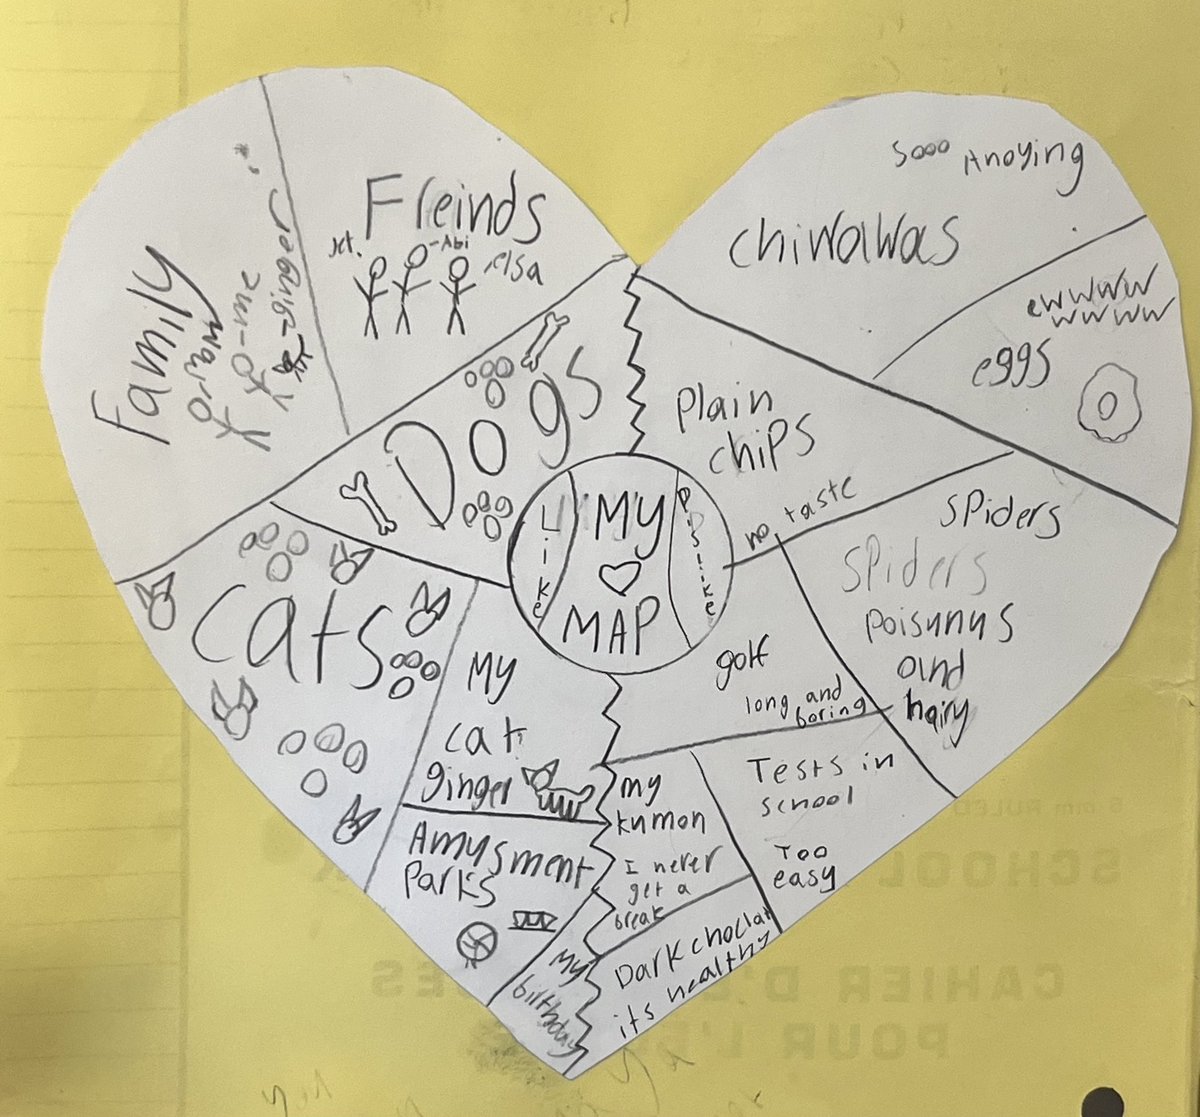 Family
Fleinds
-Abi
elsa
Dogs
cats
My
cat
ginger
Amysment
Parks
My
birthday
Like
MY
MAP
Dislike
sooo Anoying
chiwawas
ewwwww
wwwww
eggs
Plain
chips
no taste
spiders
spiders
poisunus
and
hairy
golf
long and
boring
Tests in
school
Too
easy
my
kumon
I never
get a
break
Dark choclat
its healthy
SCHOOL
CAHIER D'E
POUR L'